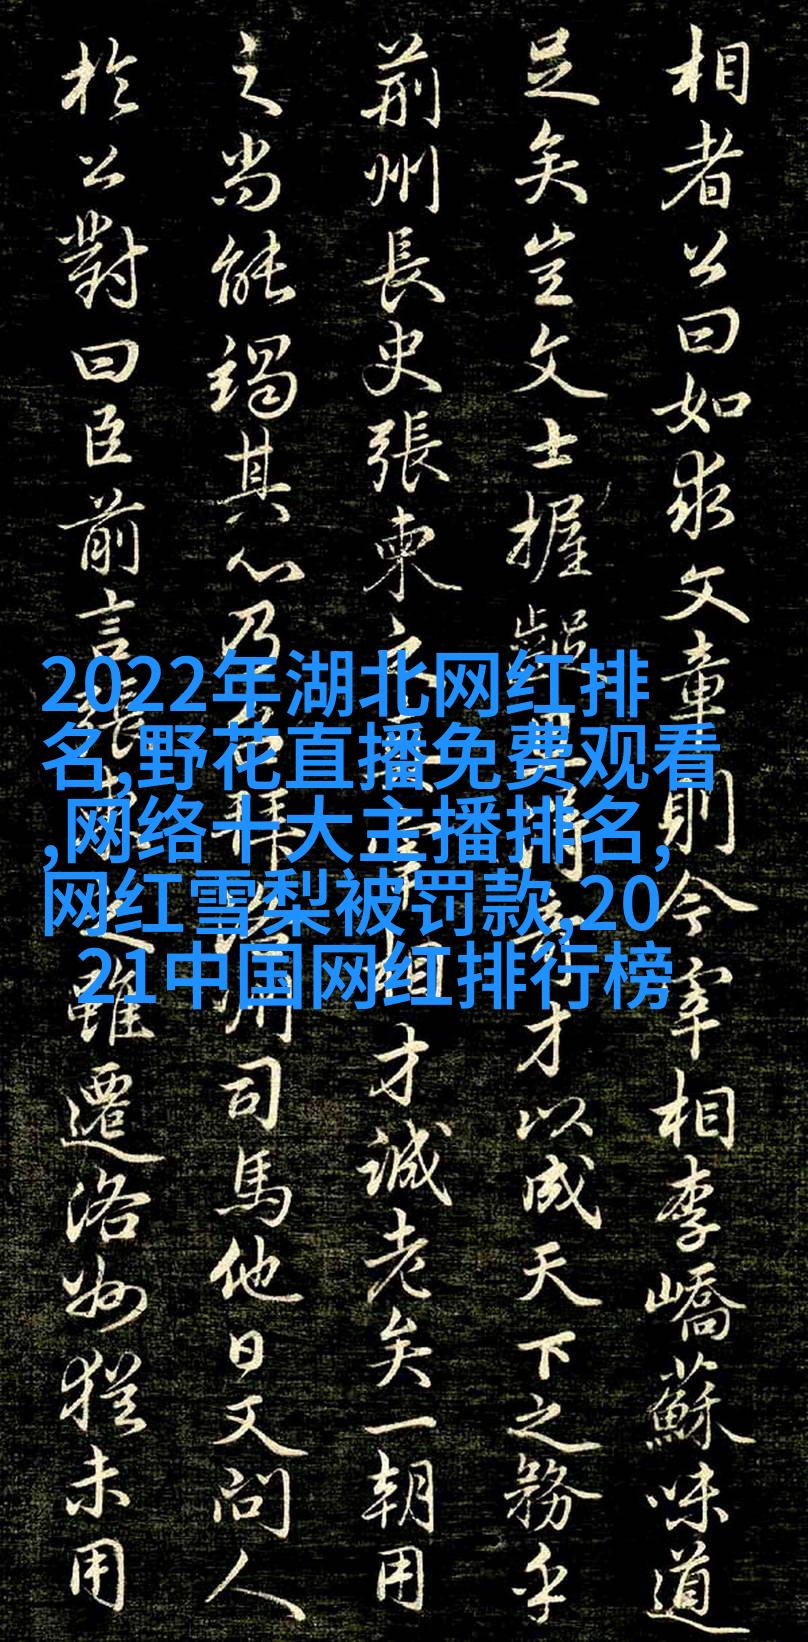 相者公曰如求文章則今宰相李嶠蘇味道
足矣豈文士握齪得奇才以成天下之務乎
荊州長史張柬之真宰相才誠老矣一朝用
之尚能竭其心乃召拜洛州司馬他日又問人
於公對曰臣前言張柬之雖遷洛州猶未用
2022年湖北网红排
名,野花直播免费观看
,网络十大主播排名,
网红雪梨被罚款,20
21中国网红排行榜